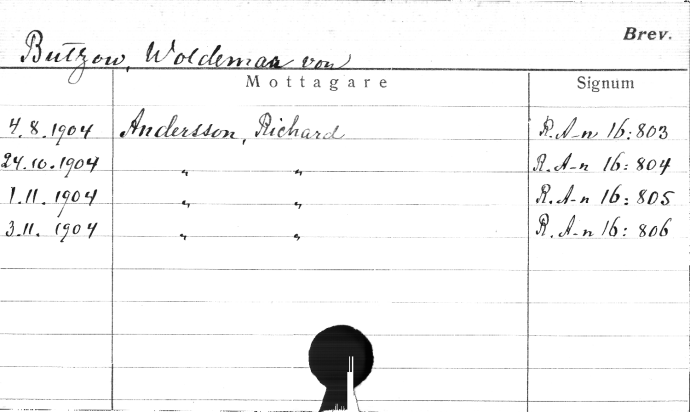 Brev.
Butzow, Woldemar von
Mottagare Signum
4.8.1904 Andersson, Richard R. A-n 16:803
24.10.1904 " " R. A-n 16: 804
1.11.1904 " " R. A-n 16: 805
3.11.1904 " " R. A-n 16: 806